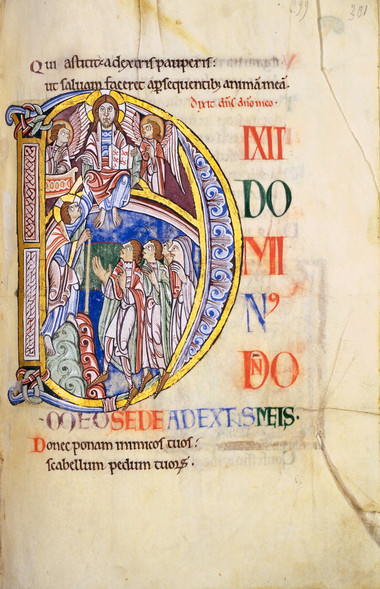 299 301
Qui astitit a dextris pauperis:
ut saluam faceret a ꝑsequentib; animā meā.
dixit dn̄s dn̄o meo.
DIXIT
DO
MI
Nꝰ
DN̄O
MEO SEDE A DEXTRIS MEIS.
Donec ponam inimicos tuos:
scabellum pedum tuoꝝ.